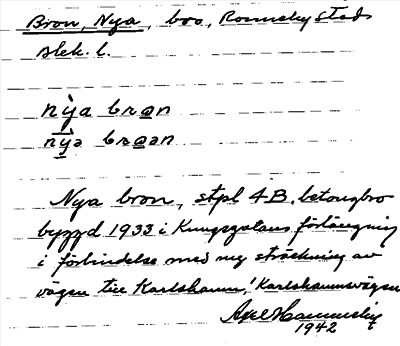 Bron, Nya, bro, Ronneby stad
Blek. l.
nỳa bron
nyə broən
Nya bron, stpl 4B, betongbro
byggd 1933 i Kungsgatans förlängning
i förbindelse med ny sträckning av
vägen till Karlshamn, Karlshamnsvägen
Axel
1942